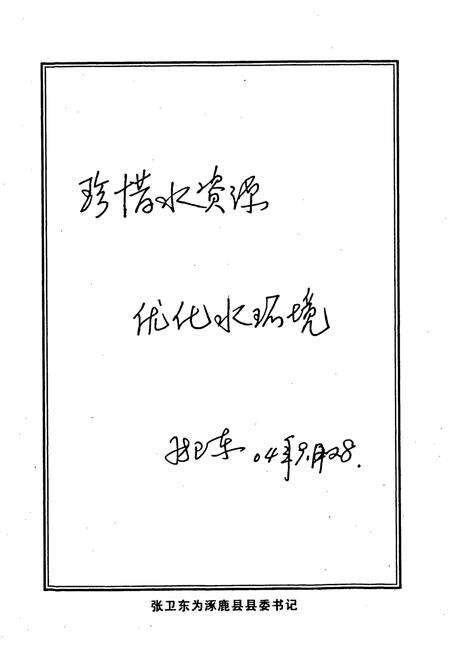 珍惜水资源
优化水环境
张卫东 04年9月28.
张卫东为涿鹿县县委书记